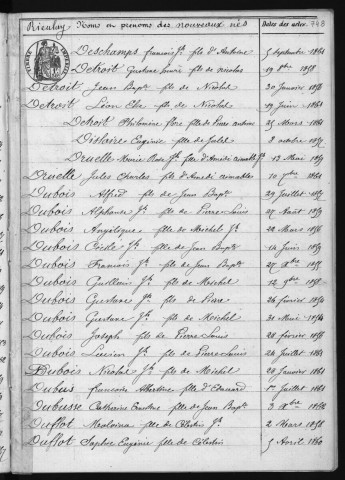 Rieulay Noms et prénoms des nouveaux nés Dates des actes. 748
Deschamps François Jh fils d'Antoine 5 septembre 1861
Detroit Gustave Louis fils de nicolas 19 8bre 1858
Detroit Jean Bapte fils de Nicolas 30 Janvier
Detroit Léon Elie fils de Nicolas 19 Juin 1861
Detroit Philomène flore fille de Pierre antoine 25 Mars 1861
Eugénie fille de Jules 8 octobre
Druelle Rose Jh fille d'Amédé aimable Jh 13 Mai
Druelle Jules Charles fils d'Amédé aimable 10 7bre 1861
Dubois Alfred fils de Jean Bapte 29 Juillet
Dubois Alphonse Jh fils de Pierre Louis 27 Août
Dubois Angélique fille de Michel Jh 22 Mars
Dubois Jh fille de Jean Bapte 14 Juin
Dubois François Jh fils de Jean Bapte 27
Dubois Guislain Jh fils de Michel 12 9bre
Dubois Gustave Jh fils de Pierre 26 février 1854
Dubois Gustave Jh fils de Michel 31 Mai 1854
Dubois Joseph fils de Pierre Louis 28 février
Dubois Lucien Jh fils de Pierre Louis 24 Juillet 1861
Dubois Nicolas Jh fils de Michel 28 Janvier 1861
Dubus françoise Albertine fille d'Edouard 1er Juillet 1861
Dubusse Catherine fille de Jean Bapte 3 Xbre 1862
Duflot fille de Célestin Jh 2 Mars 1858
Duflot Sophie Eugénie fille de Célestin 5 Avril 1860